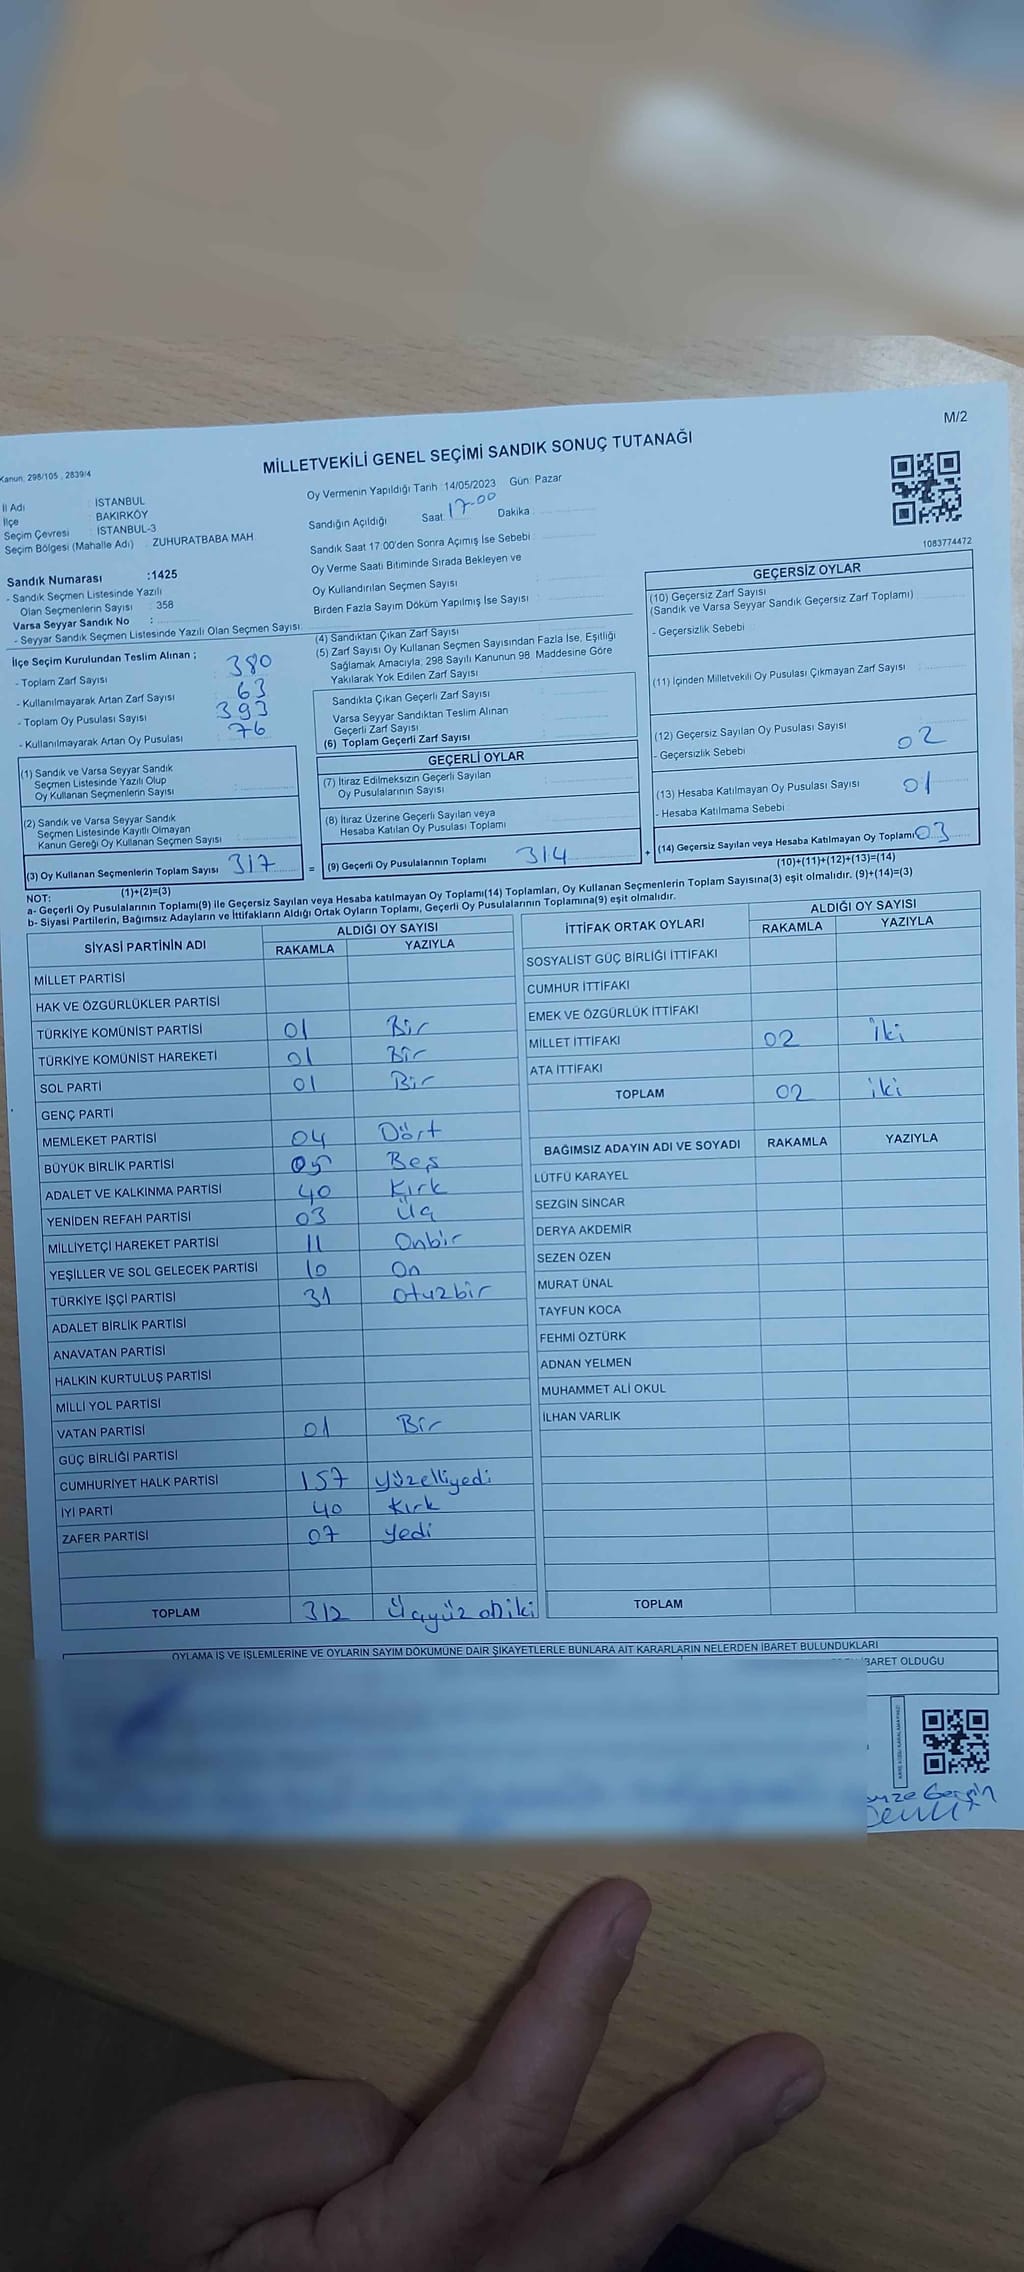 M/2
Kanun: 298/105 , 2839/4
MİLLETVEKİLİ GENEL SEÇİMİ SANDIK SONUÇ TUTANAĞI
İl Adı : İSTANBUL
İlçe : BAKIRKÖY
Seçim Çevresi : İSTANBUL-3
Seçim Bölgesi (Mahalle Adı) : ZUHURATBABA MAH
Sandık Numarası :1425
- Sandık Seçmen Listesinde Yazılı
Olan Seçmenlerin Sayısı : 358
Varsa Seyyar Sandık No :
- Seyyar Sandık Seçmen Listesinde Yazılı Olan Seçmen Sayısı:
Oy Vermenin Yapıldığı Tarih :14/05/2023 Gün: Pazar
Sandığın Açıldığı Saat: 17-00 Dakika :
Sandık Saat 17:00'den Sonra Açımış İse Sebebi :
Oy Verme Saati Bitiminde Sırada Bekleyen ve
Oy Kullandırılan Seçmen Sayısı :
Birden Fazla Sayım Döküm Yapılmış İse Sayısı :
1083774472
İlçe Seçim Kurulundan Teslim Alınan ;
- Toplam Zarf Sayısı : 380
- Kullanılmayarak Artan Zarf Sayısı : 63
- Toplam Oy Pusulası Sayısı : 393
- Kullanılmayarak Artan Oy Pusulası : 76
(1) Sandık ve Varsa Seyyar Sandık
Seçmen Listesinde Yazılı Olup
Oy Kullanan Seçmenlerin Sayısı :
(2) Sandık ve Varsa Seyyar Sandık
Seçmen Listesinde Kayıtlı Olmayan
Kanun Gereği Oy Kullanan Seçmen Sayısı :
(3) Oy Kullanan Seçmenlerin Toplam Sayısı : 317
(1)+(2)=(3)
(4) Sandıktan Çıkan Zarf Sayısı :
(5) Zarf Sayısı Oy Kullanan Seçmen Sayısından Fazla İse, Eşitliği
Sağlamak Amacıyla, 298 Sayılı Kanunun 98. Maddesine Göre
Yakılarak Yok Edilen Zarf Sayısı :
Sandıkta Çıkan Geçerli Zarf Sayısı :
Varsa Seyyar Sandıktan Teslim Alınan
Geçerli Zarf Sayısı :
(6) Toplam Geçerli Zarf Sayısı :
GEÇERLİ OYLAR
(7) İtiraz Edilmeksizin Geçerli Sayılan
Oy Pusulalarının Sayısı :
(8) İtiraz Üzerine Geçerli Sayılan veya
Hesaba Katılan Oy Pusulası Toplamı :
= (9) Geçerli Oy Pusulalarının Toplamı : 314
GEÇERSİZ OYLAR
(10) Geçersiz Zarf Sayısı
(Sandık ve Varsa Seyyar Sandık Geçersiz Zarf Toplamı) :
- Geçersizlik Sebebi :
(11) İçinden Milletvekili Oy Pusulası Çıkmayan Zarf Sayısı :
(12) Geçersiz Sayılan Oy Pusulası Sayısı : 02
- Geçersizlik Sebebi :
(13) Hesaba Katılmayan Oy Pusulası Sayısı : 01
- Hesaba Katılmama Sebebi :
+ (14) Geçersiz Sayılan veya Hesaba Katılmayan Oy Toplamı: 03
(10)+(11)+(12)+(13)=(14)
NOT:
a- Geçerli Oy Pusulalarının Toplamı(9) ile Geçersiz Sayılan veya Hesaba katılmayan Oy Toplamı(14) Toplamları, Oy Kullanan Seçmenlerin Toplam Sayısına(3) eşit olmalıdır. (9)+(14)=(3)
b- Siyasi Partilerin, Bağımsız Adayların ve İttifakların Aldığı Ortak Oyların Toplamı, Geçerli Oy Pusulalarının Toplamına(9) eşit olmalıdır.
SİYASİ PARTİNİN ADI ALDIĞI OY SAYISI
RAKAMLA YAZIYLA
MİLLET PARTİSİ
HAK VE ÖZGÜRLÜKLER PARTİSİ
TÜRKİYE KOMÜNİST PARTİSİ 01 Bir
TÜRKİYE KOMÜNİST HAREKETİ 01 Bir
SOL PARTİ 01 Bir
GENÇ PARTİ
MEMLEKET PARTİSİ 04 Dört
BÜYÜK BİRLİK PARTİSİ 05 Beş
ADALET VE KALKINMA PARTİSİ 40 Kırk
YENİDEN REFAH PARTİSİ 03 Üç
MİLLİYETÇİ HAREKET PARTİSİ 11 Onbir
YEŞİLLER VE SOL GELECEK PARTİSİ 10 On
TÜRKİYE İŞÇİ PARTİSİ 31 otuzbir
ADALET BİRLİK PARTİSİ
ANAVATAN PARTİSİ
HALKIN KURTULUŞ PARTİSİ
MİLLİ YOL PARTİSİ
VATAN PARTİSİ 01 Bir
GÜÇ BİRLİĞİ PARTİSİ
CUMHURİYET HALK PARTİSİ 157 yüzelliyedi
İYİ PARTİ 40 Kırk
ZAFER PARTİSİ 07 yedi
TOPLAM 312 Üçyüz oniki
İTTİFAK ORTAK OYLARI ALDIĞI OY SAYISI
RAKAMLA YAZIYLA
SOSYALİST GÜÇ BİRLİĞİ İTTİFAKI
CUMHUR İTTİFAKI
EMEK VE ÖZGÜRLÜK İTTİFAKI
MİLLET İTTİFAKI 02 İki
ATA İTTİFAKI
TOPLAM 02 iki
BAĞIMSIZ ADAYIN ADI VE SOYADI RAKAMLA YAZIYLA
LÜTFÜ KARAYEL
SEZGİN SİNCAR
DERYA AKDEMİR
SEZEN ÖZEN
MURAT ÜNAL
TAYFUN KOCA
FEHMİ ÖZTÜRK
ADNAN YELMEN
MUHAMMET ALİ OKUL
İLHAN VARLIK
TOPLAM
OYLAMA İŞ VE İŞLEMLERİNE VE OYLARIN SAYIM DÖKÜMÜNE DAİR ŞİKAYETLERLE BUNLARA AİT KARARLARIN NELERDEN İBARET BULUNDUKLARI
İBARET OLDUĞU